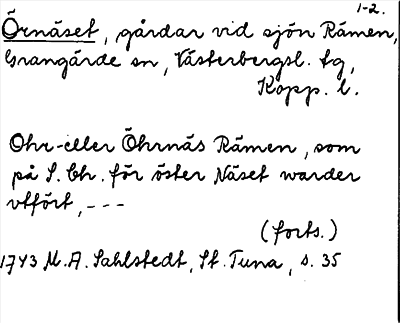 1-2.
Örnäset, gårdar vid sjön Rämen,
Grangärde sn, Västerbergsl. tg,
Kopp. l.
Ohr- eller Öhrnäs Rämen, som
på S. Ch. för öster Näset warder
vtfört, ---
(forts.)
1743 M. A. Sahlstedt, St. Tuna, s. 35